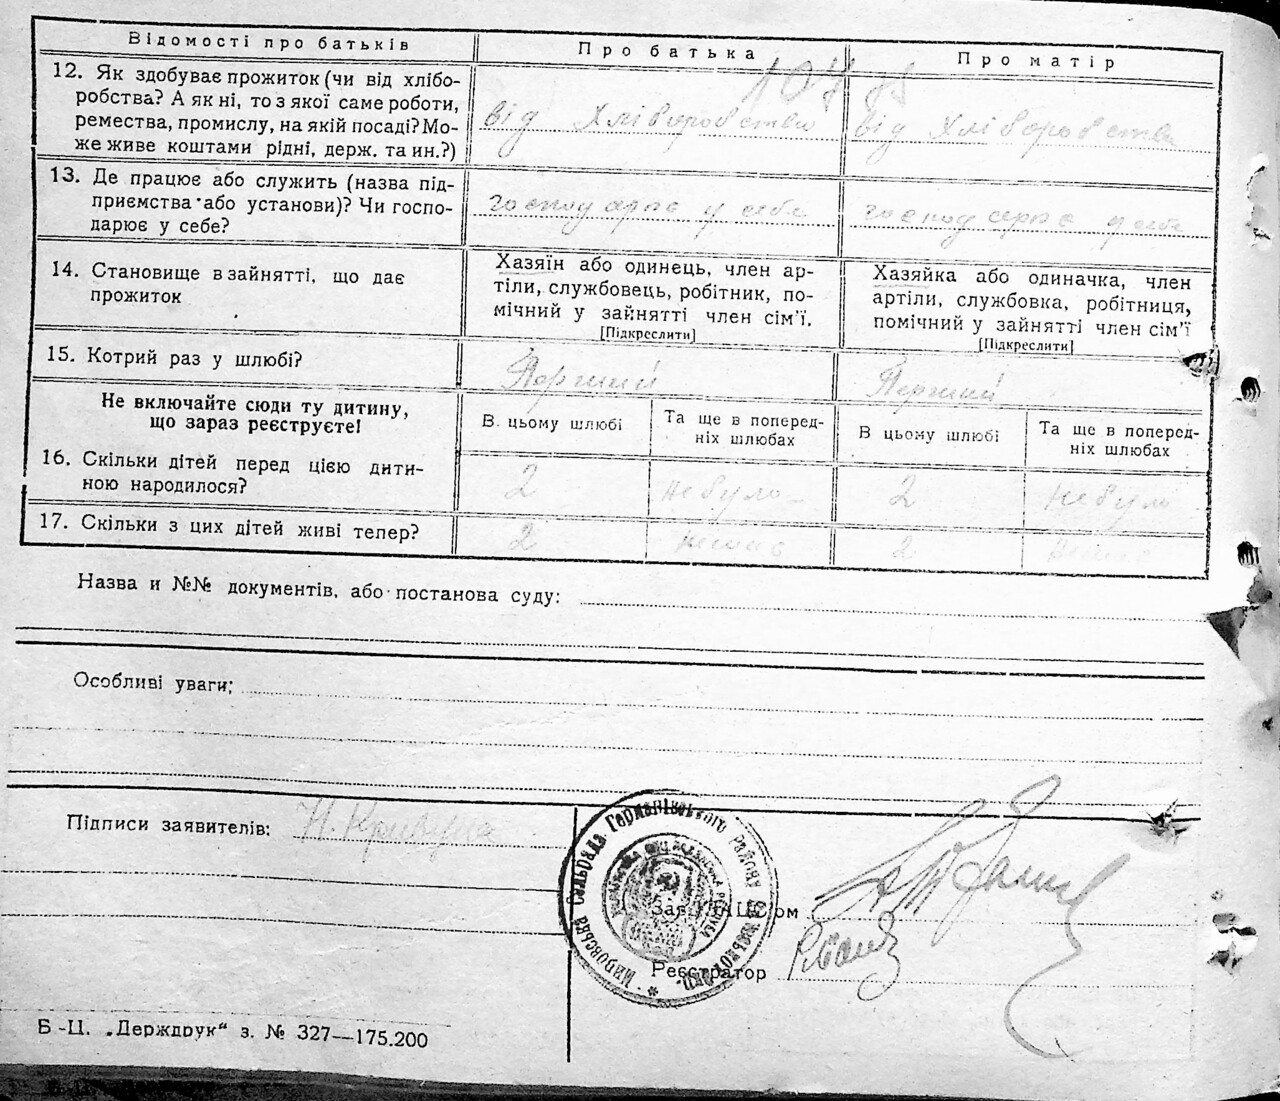 Відомості про батьків
Про батька
Про матір
12. Як здобуває прожиток (чи від хлібо-
робства? А як ні, то з якої саме роботи,
ремества, промислу, на якій посаді? Мо-
же живе коштами рідні, держ. та ин.?)
від Хліборобства
від Хліборобства
13. Де працює або служить (назва під-
приємства або установи)? Чи госпо-
дарює у себе?
господарює у себе
господарює у себе
14. Становище в зайнятті, що дає
прожиток
Хазяїн або одинець, член ар-
тіли, службовець, робітник, по-
мічний у зайнятті член сім'ї.
[Підкреслити]
Хазяйка або одиначка, член
артіли, службовка, робітниця,
помічний у зайнятті член сім'ї
[Підкреслити]
15. Котрий раз у шлюбі?
Перший
Перший
Не включайте сюди ту дитину,
що зараз реєструєте!
В цьому шлюбі
Та ще в поперед-
ніх шлюбах
В цьому шлюбі
Та ще в поперед-
ніх шлюбах
16. Скільки дітей перед цією дити-
ною народилося?
2
не було
2
не було
17. Скільки з цих дітей живі тепер?
2
немає
2
Назва и №№ документів, або постанова суду:
Особливі уваги:
Підписи заявителів: Н. Кривуша
Зав. ЗАЦС'ом
Реєстратор
Мировська Сільрада Германівського Району
Б-Ц. „Держдрук" з. № 327—175.200